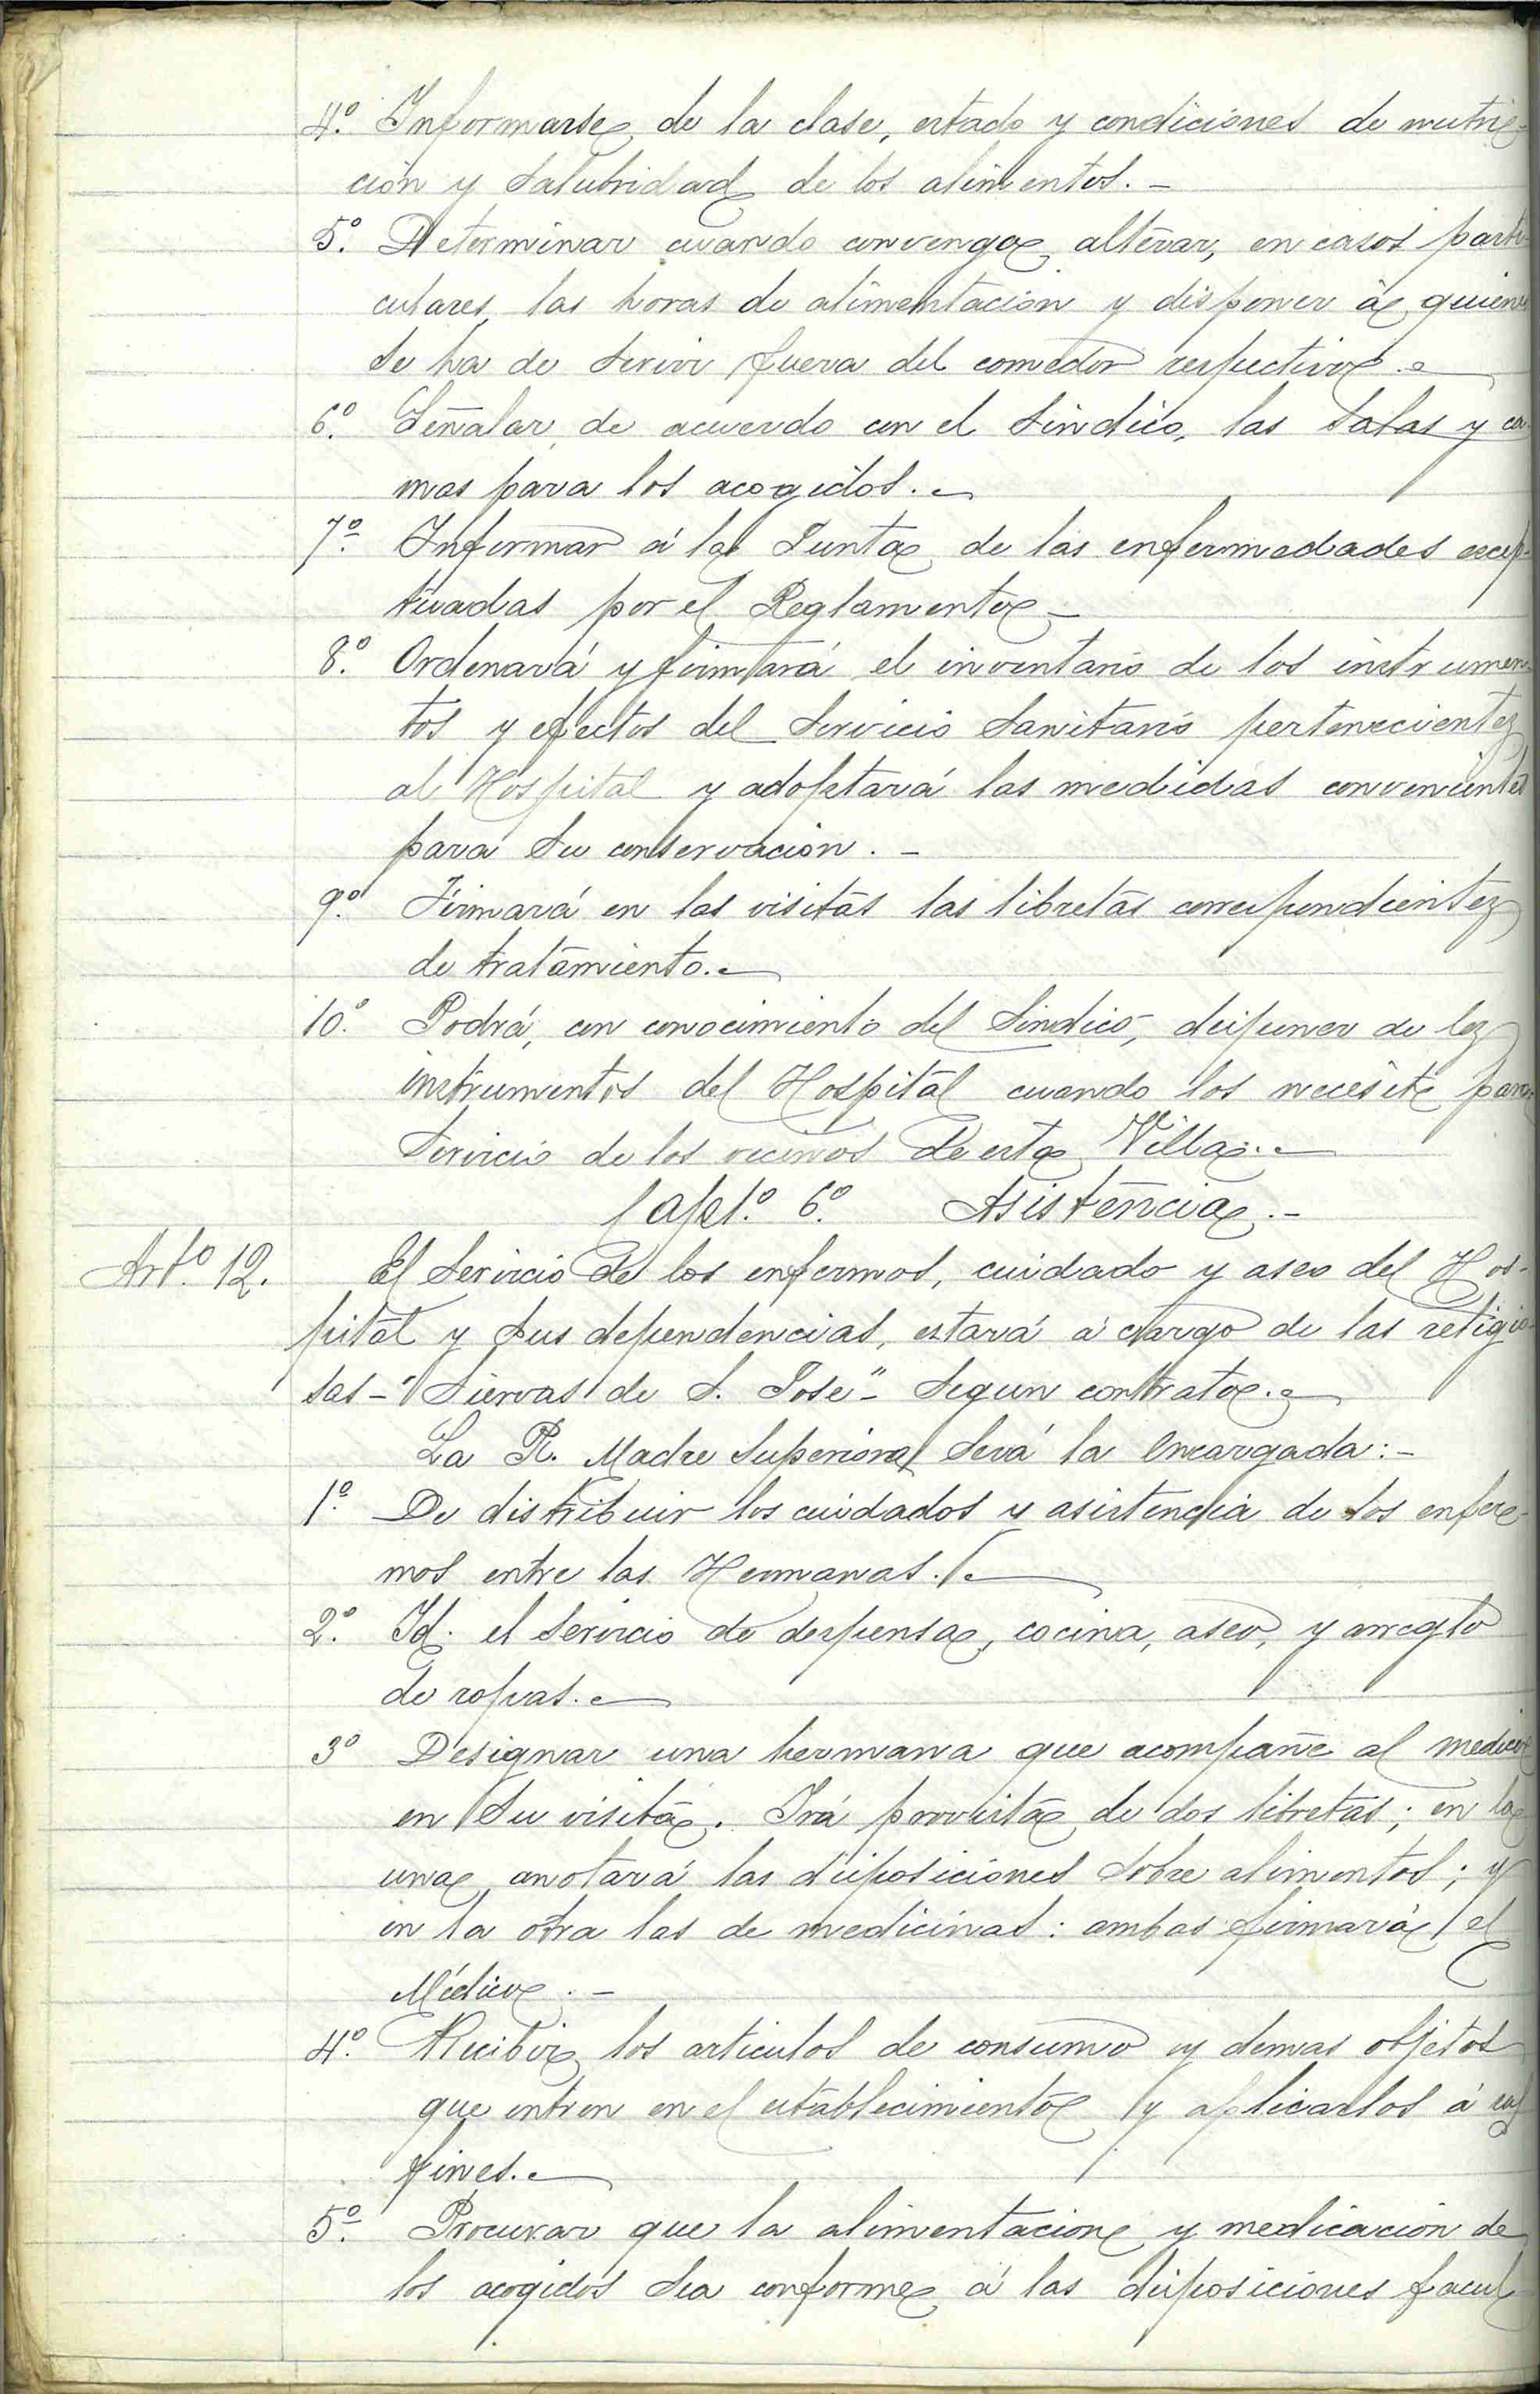 4º. Informarse de la clase, estado y condiciones de nutri-
ción y salubridad de los alimentos. -
5º. Determinar cuando convenga alterar, en casos parti-
culares, las horas de alimentación y disponer á quienes
se ha de servir fuera del comedor respectivo. -
6º. Señalar, de acuerdo con el Sindico, las Salas y ca-
mas para los acogidos. -
7º. Informar á la Junta de las enfermedades excep-
tuadas por el Reglamento -
8º. Ordenará y firmará el inventario de los instrumen-
tos y efectos del Servicio Sanitario pertenecientes
al Hospital y adoptará las medidas convenientes
para su conservación. -
9º. Firmará en las visitas las libretas correspondientes
de tratamiento. -
10º. Podrá, con conocimiento del Sindico, disponer de los
instrumentos del Hospital cuando los necesite para
Servicio de los vecinos de esta Villa. -
Capt.º 6º. Asistencia. -
Art.º 12. El Servicio de los enfermos, cuidado y aseo del Hos-
pital y sus dependencias, estará á cargo de las religio-
sas - "Siervas de S. José" - Segun contrato. -
La R. Madre Superiora Será la encargada: -
1º. De distribuir los cuidados y asistencia de los enfer-
mos entre las Hermanas. -
2º. Id. el Servicio de despensa, cocina, aseo, y arreglo
de ropas. -
3º Designar una hermana que acompañe al medico
en su visita. Irá provista de dos libretas; en la
una anotará las disposiciones sobre alimentos; y
en la otra las de medicinas: ambas firmará el
Médico. -
4º. Recibir los articulos de consumo y demas objetos
que entren en el establecimiento y aplicarlos á sus
fines. -
5º. Procurar que la alimentacion y medicación de
los acogidos sea conforme á las disposiciones facul